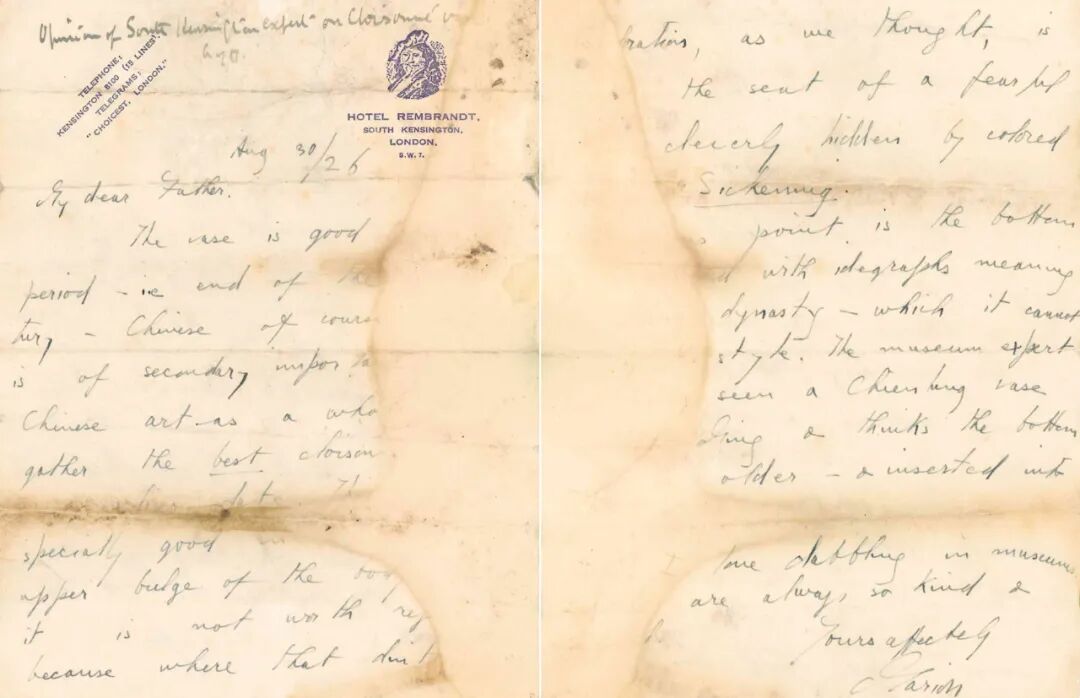 Opinion of South Kensington expert on Cloisonné
TELEPHONE,
KENSINGTON 8100 (15 LINES).
TELEGRAMS,
"CHOICEST, LONDON."
HOTEL REMBRANDT,
SOUTH KENSINGTON,
LONDON.
S.W.7.
Aug 30/26
My dear Father.
The vase is good
period - ie end of the
tury - Chinese of cours
is of secondary impor
Chinese art as a who
gather the best cloison
specially good
upper bulge of the bo
it is not worth re
because where that dint
bration, as we thought, is
the seat of a fearful
cleverly hidden by colored
Sickening.
point is the bottom
with ideographs meaning
dynasty - which it cannot
style. The museum expert
seen a Chienlung vase
& thinks the bottom
older - & inserted into
love dabbling in museums
are always so kind &
Yours affectly